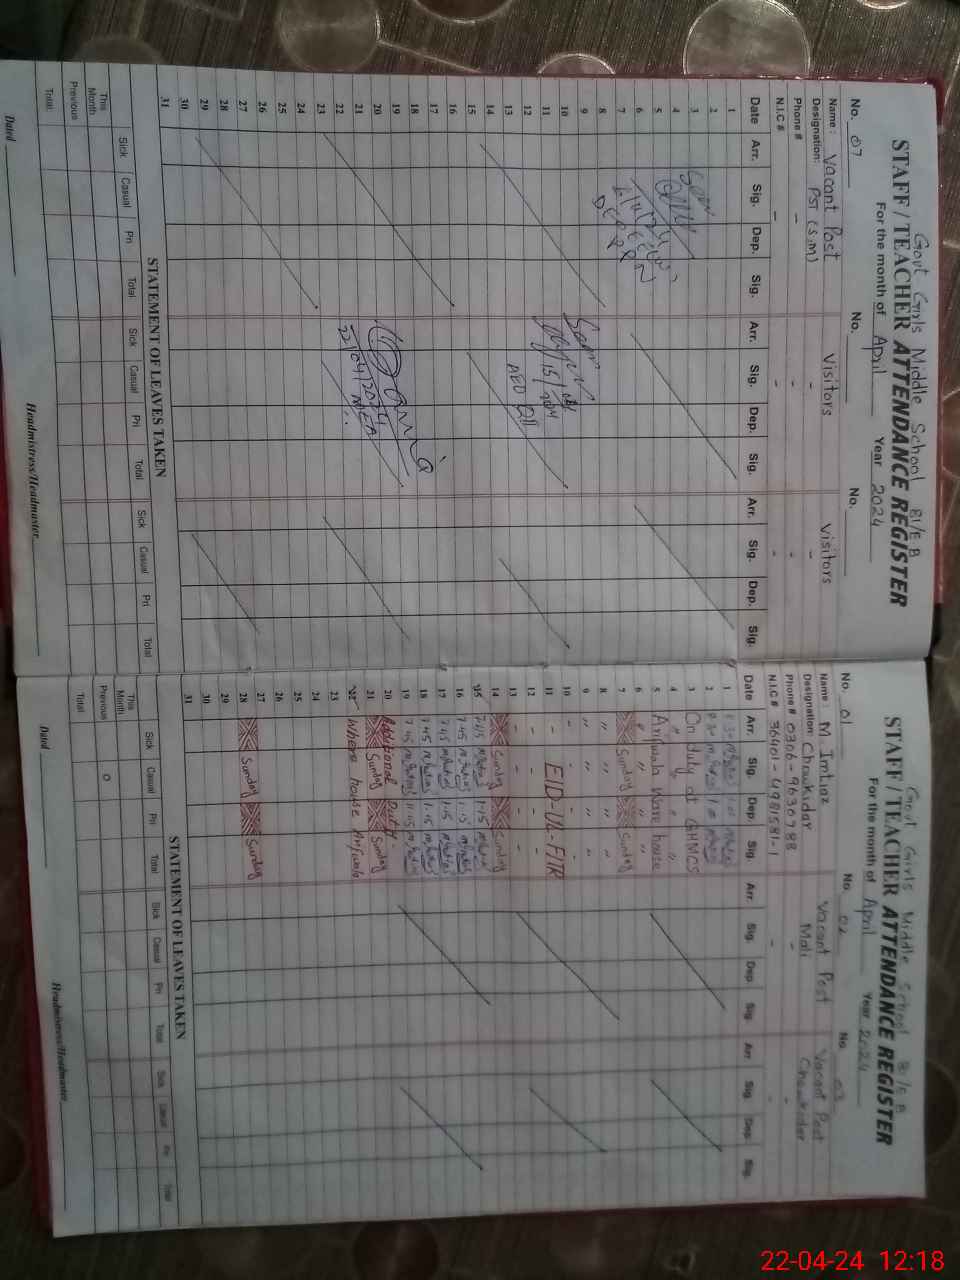 Govt Girls Middle School 81/E B
STAFF / TEACHER ATTENDANCE REGISTER
For the month of April Year 2024
No. 07 No. No.
Name : Vacant Post Visitors Visitors
Designation: PST (S.M) - -
Phone # - - -
N.I.C # - - -
Date Arr. Sig. Dep. Sig. Arr. Sig. Dep. Sig. Arr. Sig. Dep. Sig.
1
2
3
4
5
6
7
8
9
10
11
12
13
14
15
16
17
18
19
20
21
22
23
24
25
26
27
28
29
30
31
15/
AEO
22/04/2024
MEA
STATEMENT OF LEAVES TAKEN
Sick Casual Pri Total Sick Casual Pri Total Sick Casual Pri Total
This Month
Previous
Total
Dated Headmistress/Headmaster
Govt Girls Middle School 81/E B
STAFF / TEACHER ATTENDANCE REGISTER
For the month of April Year 2024
No. 01 No. 02 No. 03
Name : M Imtiaz Vacant Post Vacant Post
Designation: Chowkidar Mali Chowkidar
Phone # 0306-9630788 -
N.I.C # 36401-4981581-1 - -
Date Arr. Sig. Dep Sig. Arr. Sig. Dep Sig. Arr Sig. Dep. Sig.
1
2
3 On duty at GHMCS
4 " " " "
5 Arifwala Ware house
6 " " " "
7 Sunday Sunday
8 " " " "
9 " " " "
10 - - - -
11 EID-UL-FITR
12 - - - -
13 - - - -
14 Sunday Sunday
15 7:45 1:15
16 7:45 1:15
17 7:45 1:15
18 7:45 1:15
19 7:45 11:15
20 Additional Duty
21 Sunday Sunday
22 Where house Arifwala
23
24
25
26
27
28 Sunday Sunday
29
30
31
STATEMENT OF LEAVES TAKEN
Sick Casual Pri Total Sick Casual Pri Total Sick Casual Pri Total
This Month
Previous 0
Total
Dated Headmistress/Headmaster
22-04-24 12:18